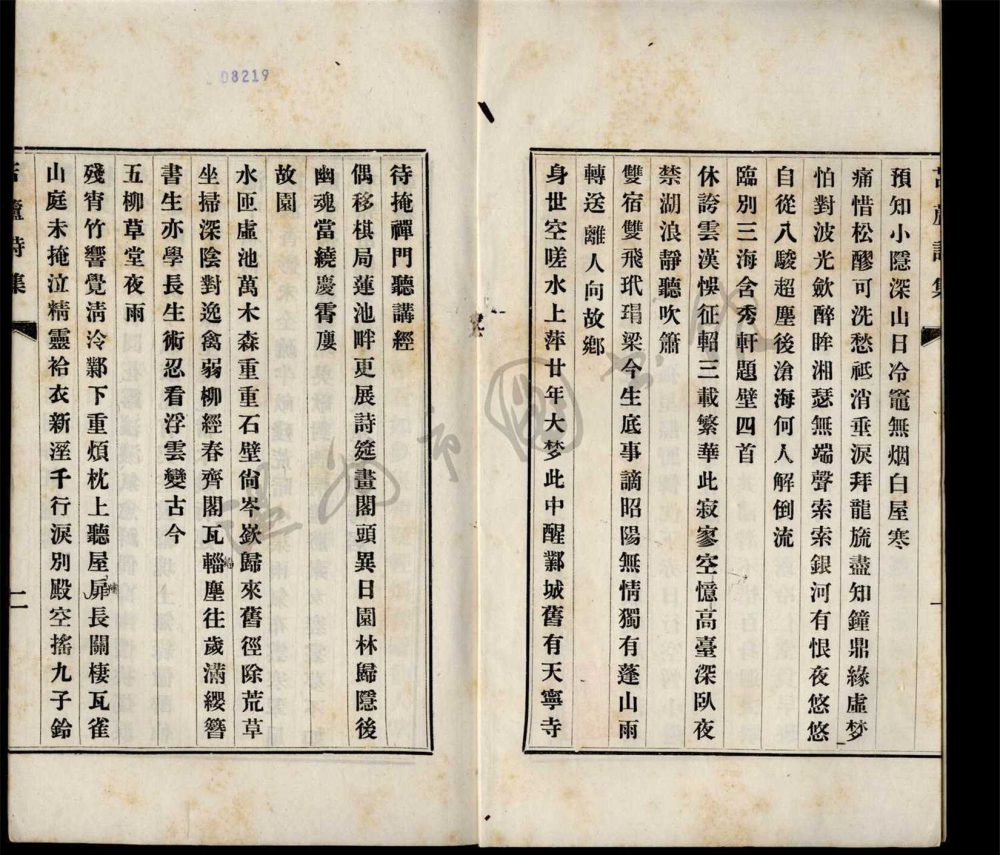 08219
預知小隱深山日冷竈無烟白屋寒
痛惜松醪可洗愁祗消垂淚拜龍旒盡知鐘鼎緣虛梦
怕對波光歛醉眸湘瑟無端聲索索銀河有恨夜悠悠
自從八駿超塵後滄海何人解倒流
臨別三海含秀軒題壁四首
休誇雲漢悞征軺三載繁華此寂寥空憶高臺深臥夜
禁湖浪靜聽吹簫
雙宿雙飛玳瑁梁今生底事謫昭陽無情獨有蓬山雨
轉送離人向故鄉
身世空嗟水上萍廿年大梦此中醒酇城舊有天寧寺
待掩禪門聽講經
偶移棋局蓮池畔更展詩筵畫閣頭異日園林歸隱後
幽魂當繞慶霄廔
故園
水匝虛池萬木森重重石壁尙岑嶔歸來舊徑除荒草
坐掃深陰對逸禽弱柳經春齊閣瓦輜塵往歲滿纓簪
書生亦學長生術忍看浮雲變古今
五柳草堂夜雨
殘宵竹響覺淸泠酇下重煩枕上聽屋扉長關棲瓦雀
山庭未掩泣精靈袷衣新溼千行淚別殿空搖九子鈴
詩集
二